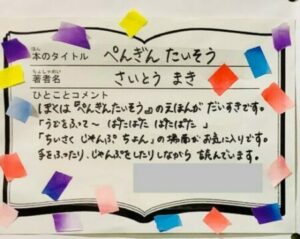 ほん
本のタイトル ぺんぎん たいそう
ちょしゃめい
著者名 さいとう まき
ひとことコメント
ぼくは『ぺんぎんたいそう』のえほんが だいすきです。
「うでをふって〜 ぱたぱた ぱたぱた 」
「ちいさく じゃんぷ ちょん」の場面がお気に入りです。
手をふったり、じゃんぷをしたりしながら 読んでいます。